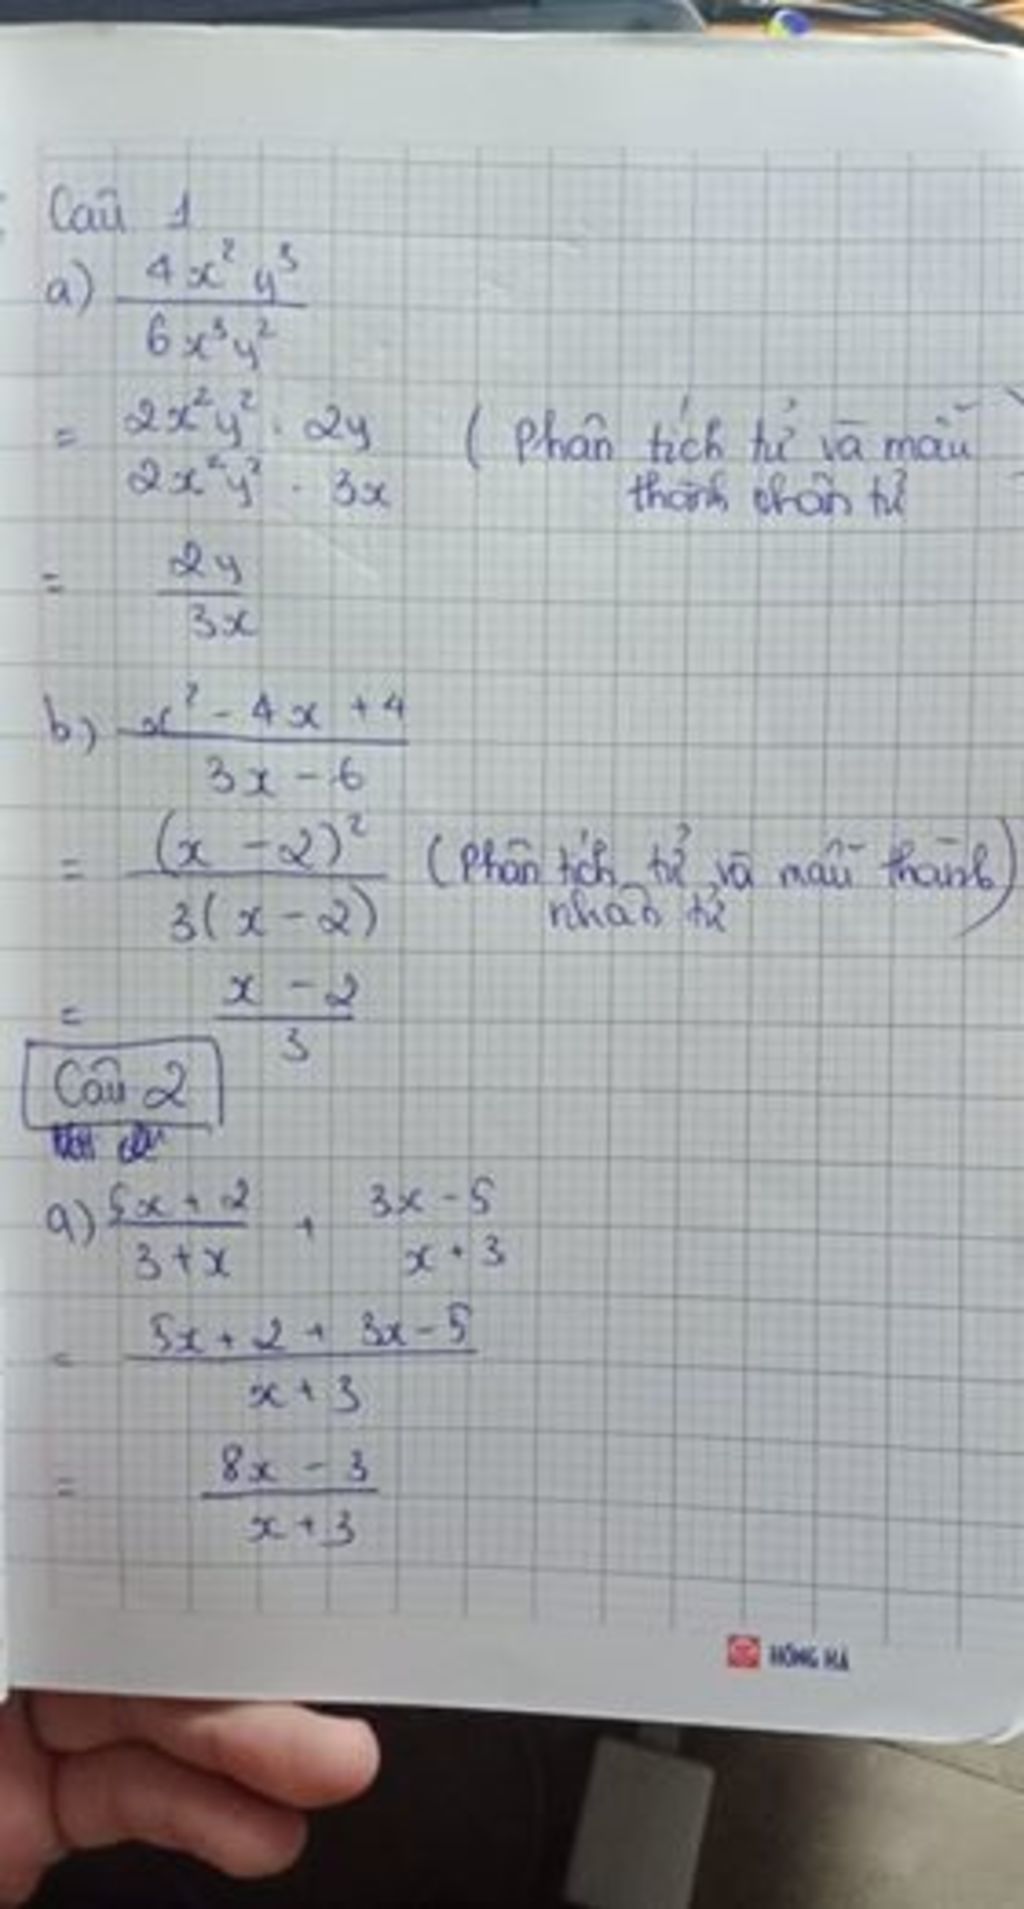 Câu 1
a) 4x² y³
6x³y²
= 2x²y² . 2y (Phân tích tử và mẫu
2x²y² . 3x thành nhân tử
= 2y
3x
b) x² - 4x + 4
3x - 6
= (x - 2)² (Phân tích tử và mẫu thành)
3(x - 2) nhân tử
= x - 2
3
Câu 2
a) 5x + 2 + 3x - 5
3 + x x + 3
= 5x + 2 + 3x - 5
x + 3
= 8x - 3
x + 3
HỒNG HÀ